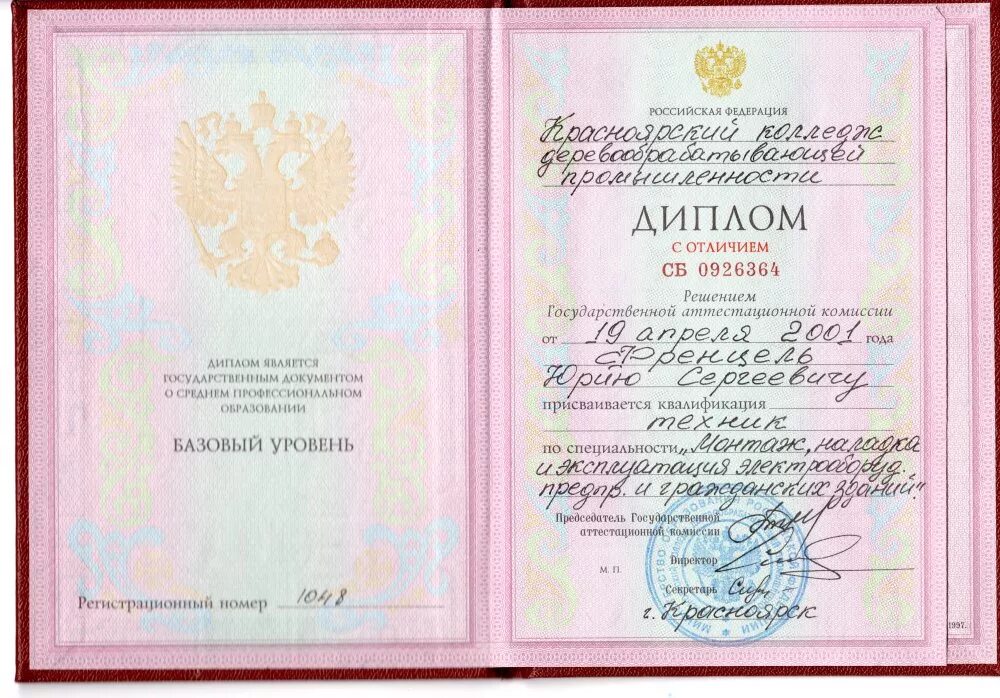 ДИПЛОМ ЯВЛЯЕТСЯ
ГОСУДАРСТВЕННЫМ ДОКУМЕНТОМ
О СРЕДНЕМ ПРОФЕССИОНАЛЬНОМ
ОБРАЗОВАНИИ
БАЗОВЫЙ УРОВЕНЬ
Регистрационный номер 1048
РОССИЙСКАЯ ФЕДЕРАЦИЯ
Красноярский колледж
деревообрабатывающей
промышленности
ДИПЛОМ
С ОТЛИЧИЕМ
СБ 0926364
Решением
Государственной аттестационной комиссии
от 19 апреля 2001 года
Френцель
Юрию Сергеевичу
присваивается квалификация
техник
по специальности „Монтаж, наладка
и эксплуатация электрооборуд.
предпр. и гражданских зданий".
Председатель Государственной
аттестационной комиссии
Директор
М. П.
Секретарь
г. Красноярск
1997.